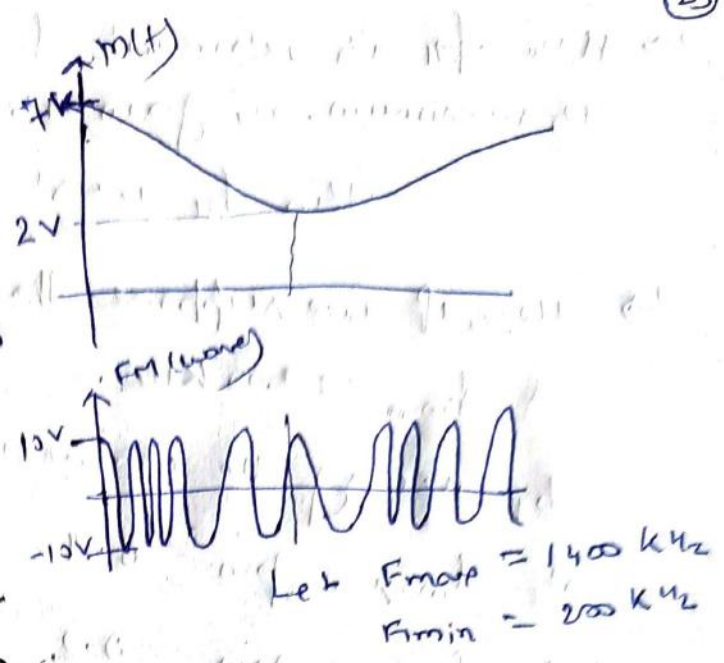 25
m(t)
7V
2V
FM (wave)
10V
-10V
Let Fmax = 1400 KHz
Fmin = 200 KHz